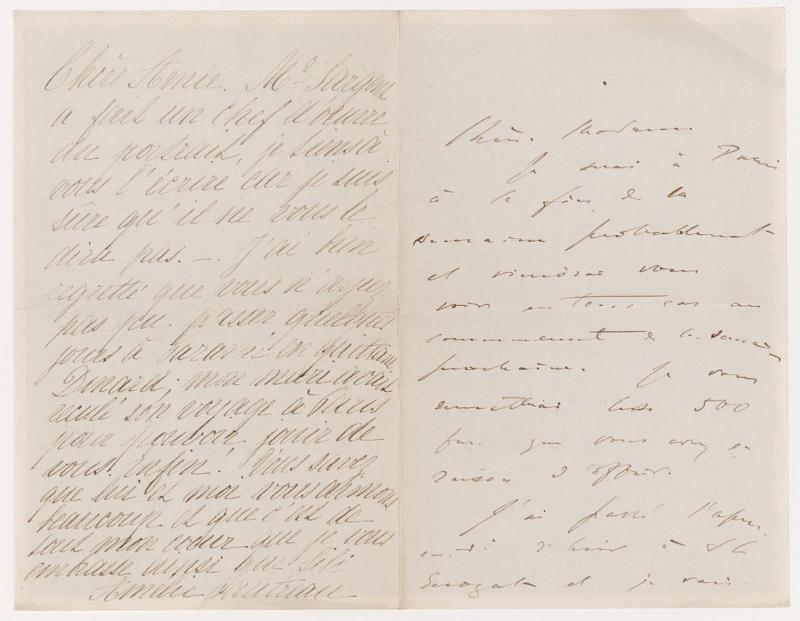 Chère Amie. Mr Sargent
a fait un chef d'œuvre
du portrait, je tiens à
vous l'écrire car je suis
sûre qu'il ne vous le
dira pas. —. J'ai bien
regretté que vous n'ayez
pas pu passer quelques
jours à Paramé en quittant
Dinard; ma mère avait
reculé son voyage à Paris
pour pouvoir jouir de
vous. Enfin! Vous savez
que lui et moi vous aimons
beaucoup et que c'est de
tout mon cœur que je vous
embrasse ainsi que Lili
Amélie Gautreau
Chère Madame
Je serai à Paris
à la fin de la
semaine probablement
et viendrai vous
voir en tous cas au
commencement de la semaine
prochaine. Je vous
remettrai les 500
frs. que vous avez eu
raison d'offrir.
J'ai passé l'après
midi d'hier à St
Enogat et je vais